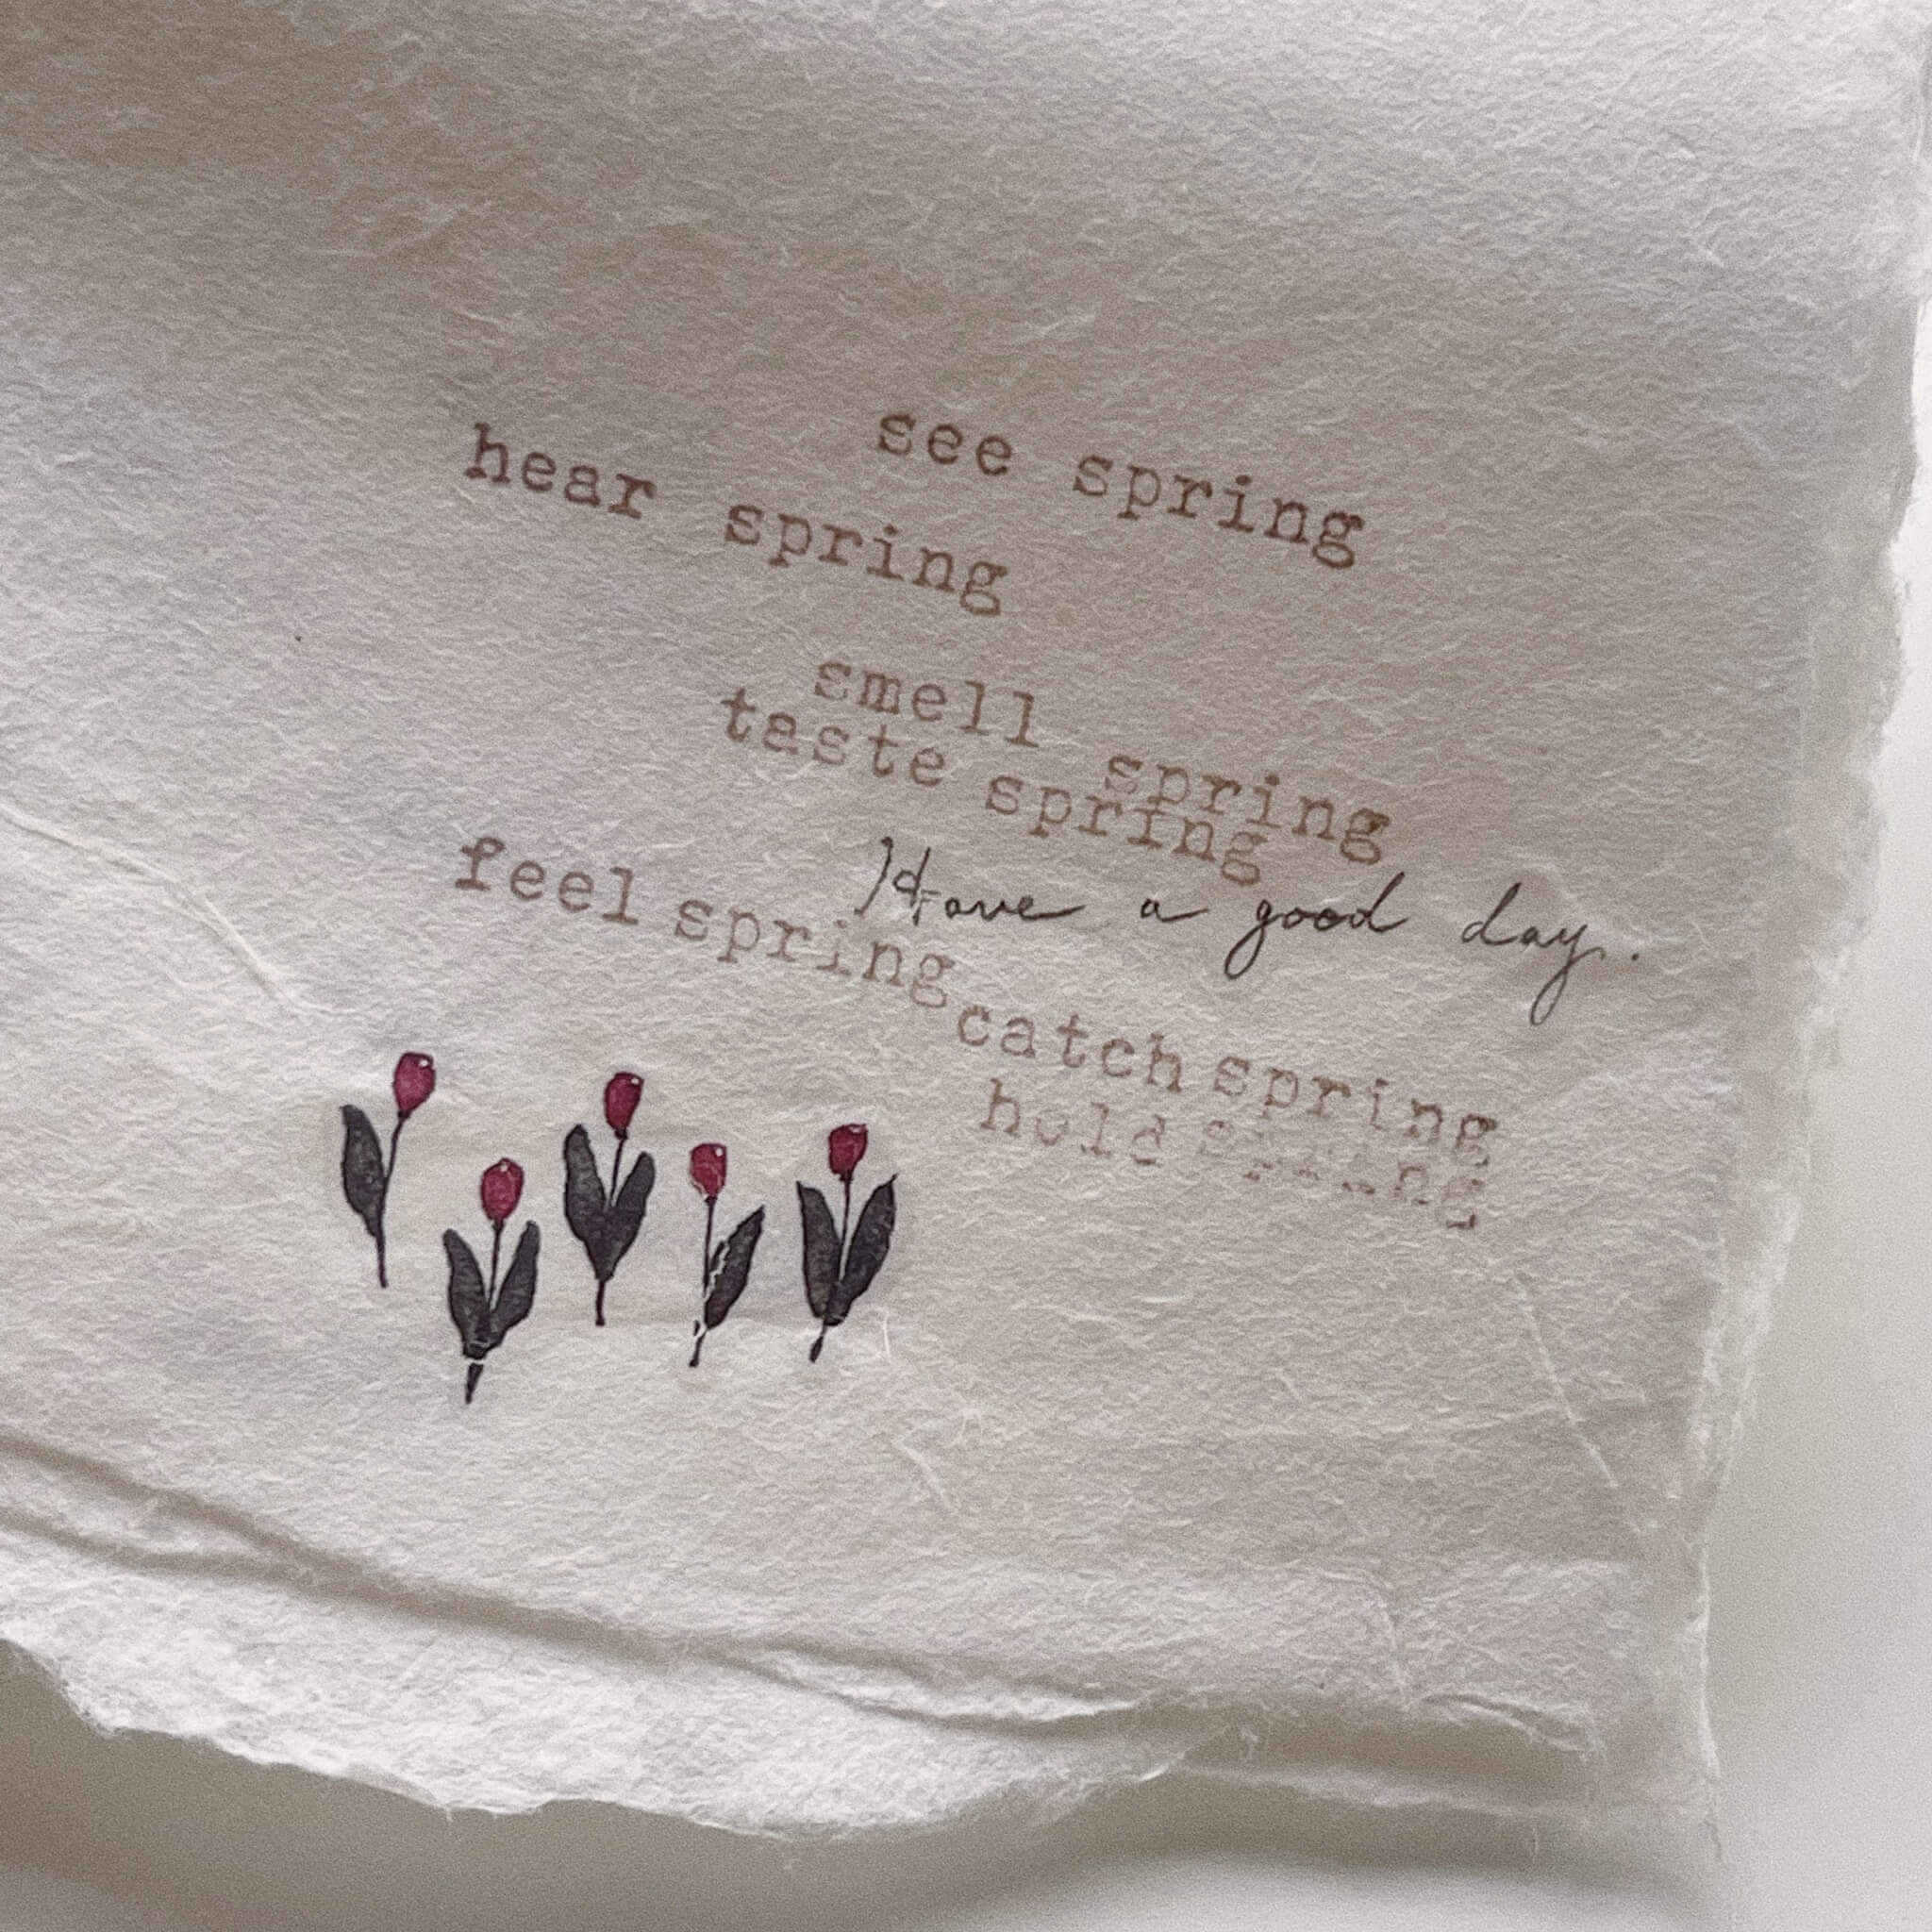 see spring
hear spring
smell spring
taste spring
Have a good day.
feel spring
catch spring
hold spring